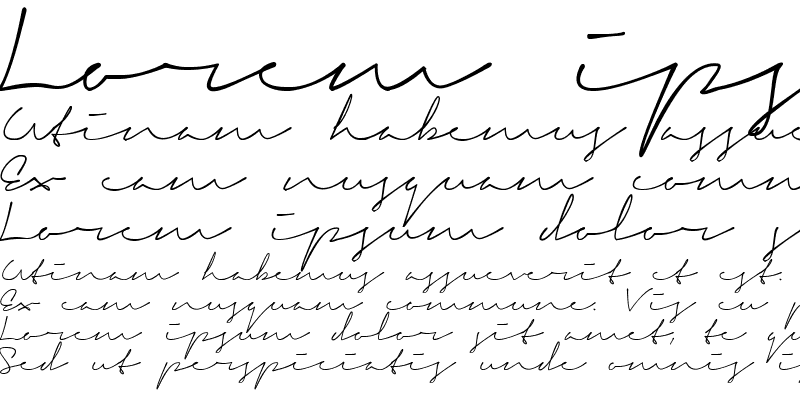 Lorem ips
Utinam habemus assue
Ex eam nusquam comm
Lorem ipsum dolor s
Utinam habemus assueverit et est.
Ex eam nusquam commune. Vis eu p
Lorem ipsum dolor sit amet, te qu
Sed ut perspiciatis unde omnis i